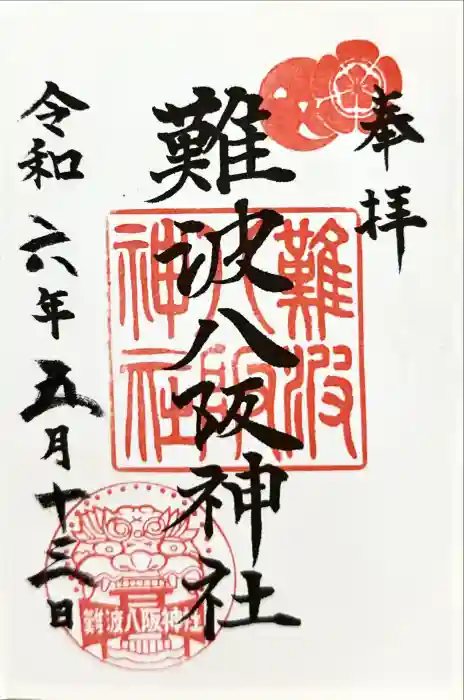 奉拝
難波八阪神社
令和六年五月十三日
難波
八阪
神社
難波八阪神社